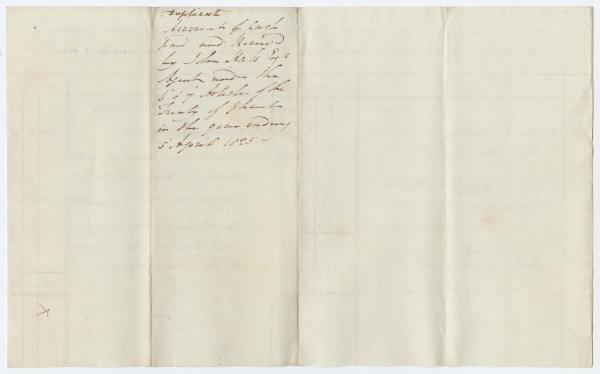 Duplicate
Account of Cash
paid and Received
by John Hall Esqr
Agent under the
5 & 7 Article of the
Treaty of Ghent
in the year ending
5 April 1825 -